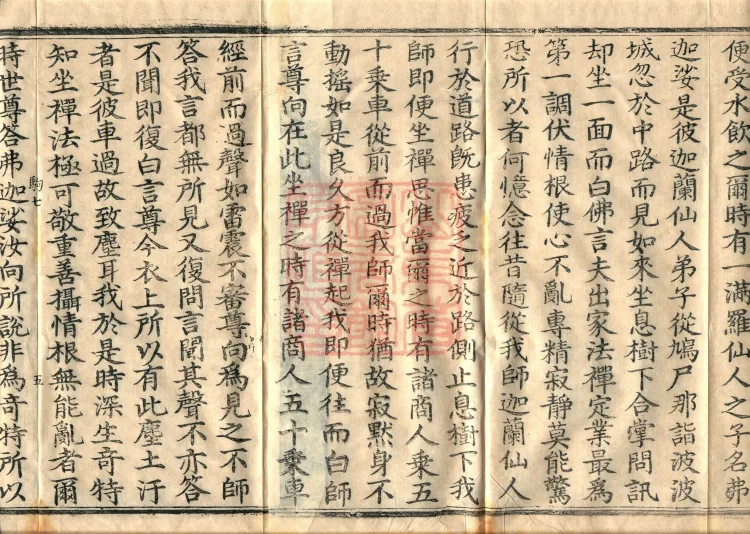 便受水飲之爾時有一滿羅仙人之子名弗
迦娑是彼迦蘭仙人弟子從鳩尸那詣波波
城忽於中路而見如來坐息樹下合掌問訊
却坐一面而白佛言夫出家法禪定業最為
第一調伏情根使心不亂專精寂靜莫能驚
恐所以者何憶念往昔隨從我師迦蘭仙人
行於道路旣患疲乏近於路側止息樹下我
師即便坐禪思惟當爾之時有諸商人乘五
十乘車從前而過我師爾時猶故寂默身不
動搖如是良久方從禪起我即便往而白師
言尊向在此坐禪之時有諸商人五十乘車
經前而過聲如雷震不審尊向為見之不師
荅我言都無所見又復問言聞其聲不亦荅
不聞即復白言尊今衣上所以有此塵土汙
者是彼車過故致塵耳我於是時深生奇特
知坐禪法極可敬重善攝情根無能亂者爾
駒七
五
時世尊荅弗迦娑汝向所說非為奇特所以